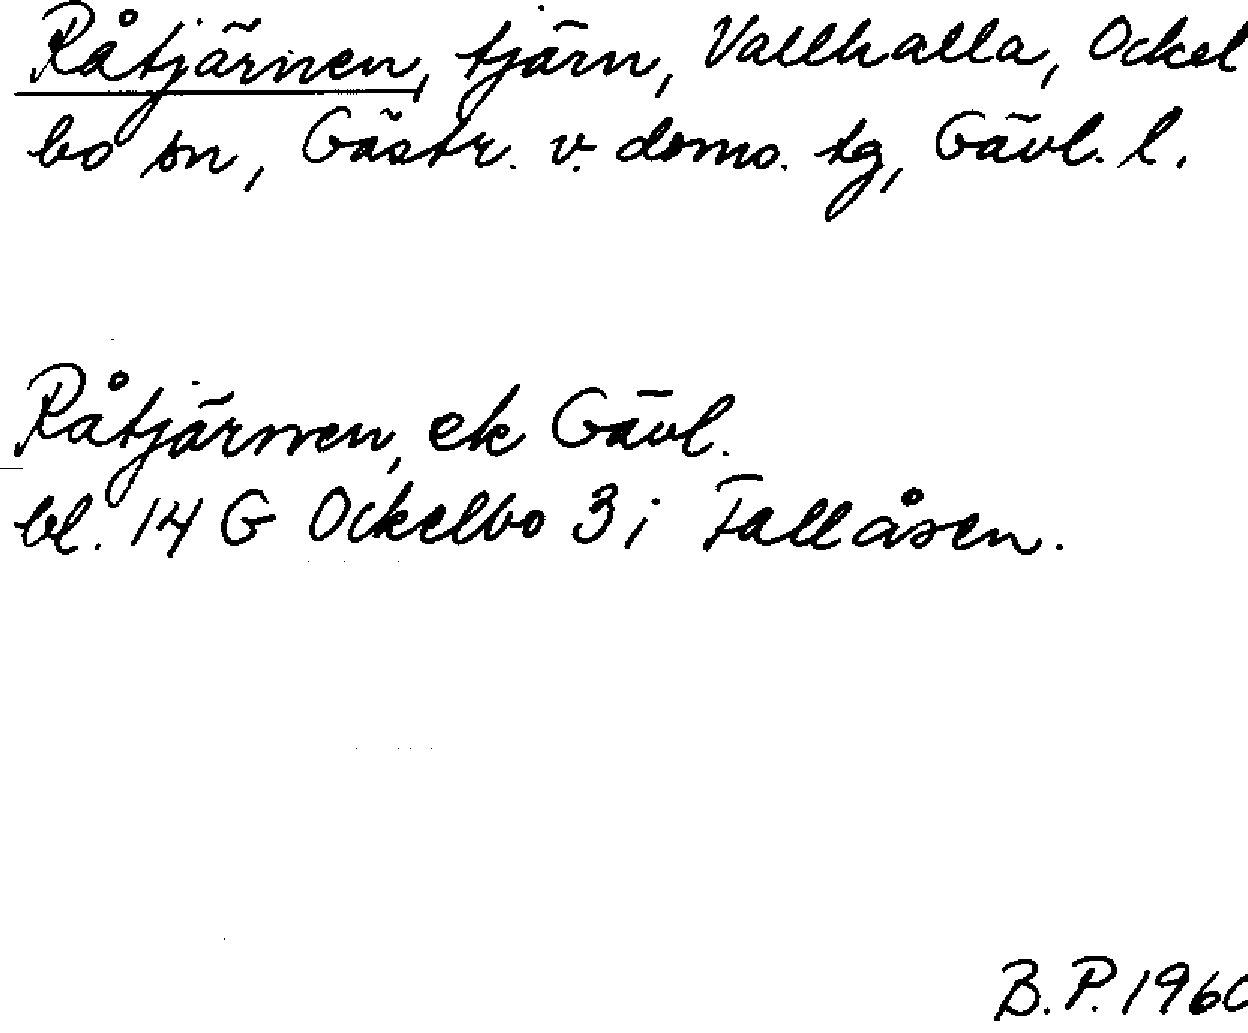 Råtjärnen, tjärn, Vallhalla, Ockel
bo sn, Gästr. v. doms. tg, Gävl. l.
Råtjärnen, ek Gävl.
bl. 14 G Ockelbo 3 i Fallåsen.
B.P. 1960